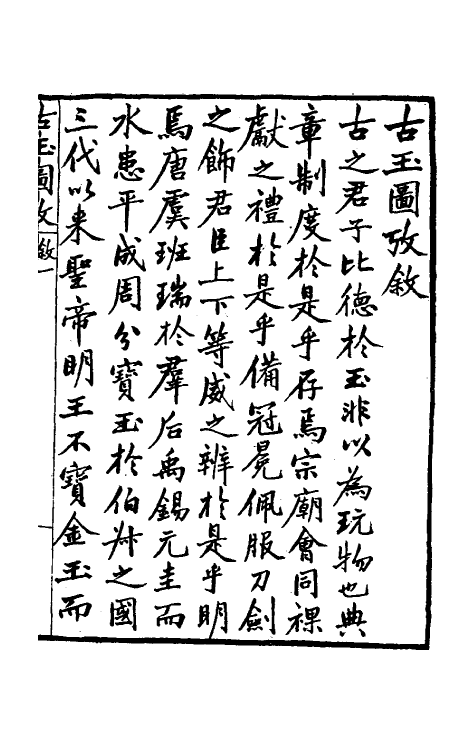 古玉圖攷敘
古之君子比德於玉非以為玩物也典
章制度於是乎存焉宗廟會同祼
獻之禮於是乎備冠冕佩服刀劍
之飾君臣上下等威之辨於是乎明
焉唐虞班瑞於羣后禹錫元圭而
水患平成周分寶玉於伯叔之國
三代以來聖帝明王不寶金玉而
古玉圖攷 敘 一